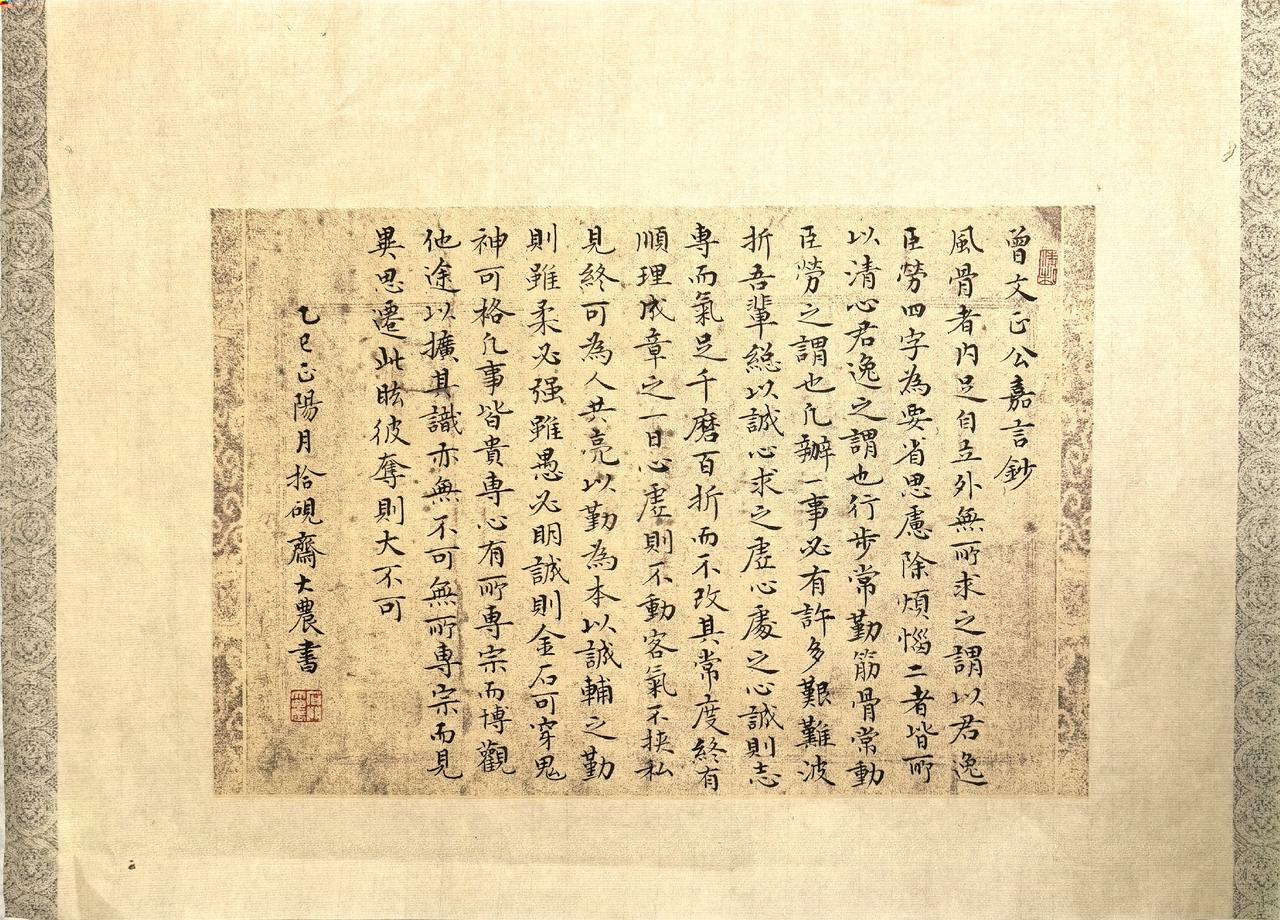 曾文正公嘉言鈔
風骨者內足自立外無所求之謂以君逸
臣勞四字為要省思慮除煩惱二者皆所
以清心君逸之謂也行步常勤筋骨常動
臣勞之謂也凡辦一事必有許多艱難波
折吾輩總以誠心求之虛心處之心誠則志
專而氣足千磨百折而不改其常度終有
順理成章之一日心虛則不動客氣不挾私
見終可為人共亮以勤為本以誠輔之勤
則雖柔必强雖愚必明誠則金石可穿鬼
神可格凡事皆貴專心有所專宗而博觀
他途以擴其識亦無不可無所專宗而見
異思遷此眩彼奪則大不可
乙巳正陽月拾硯齋大農書